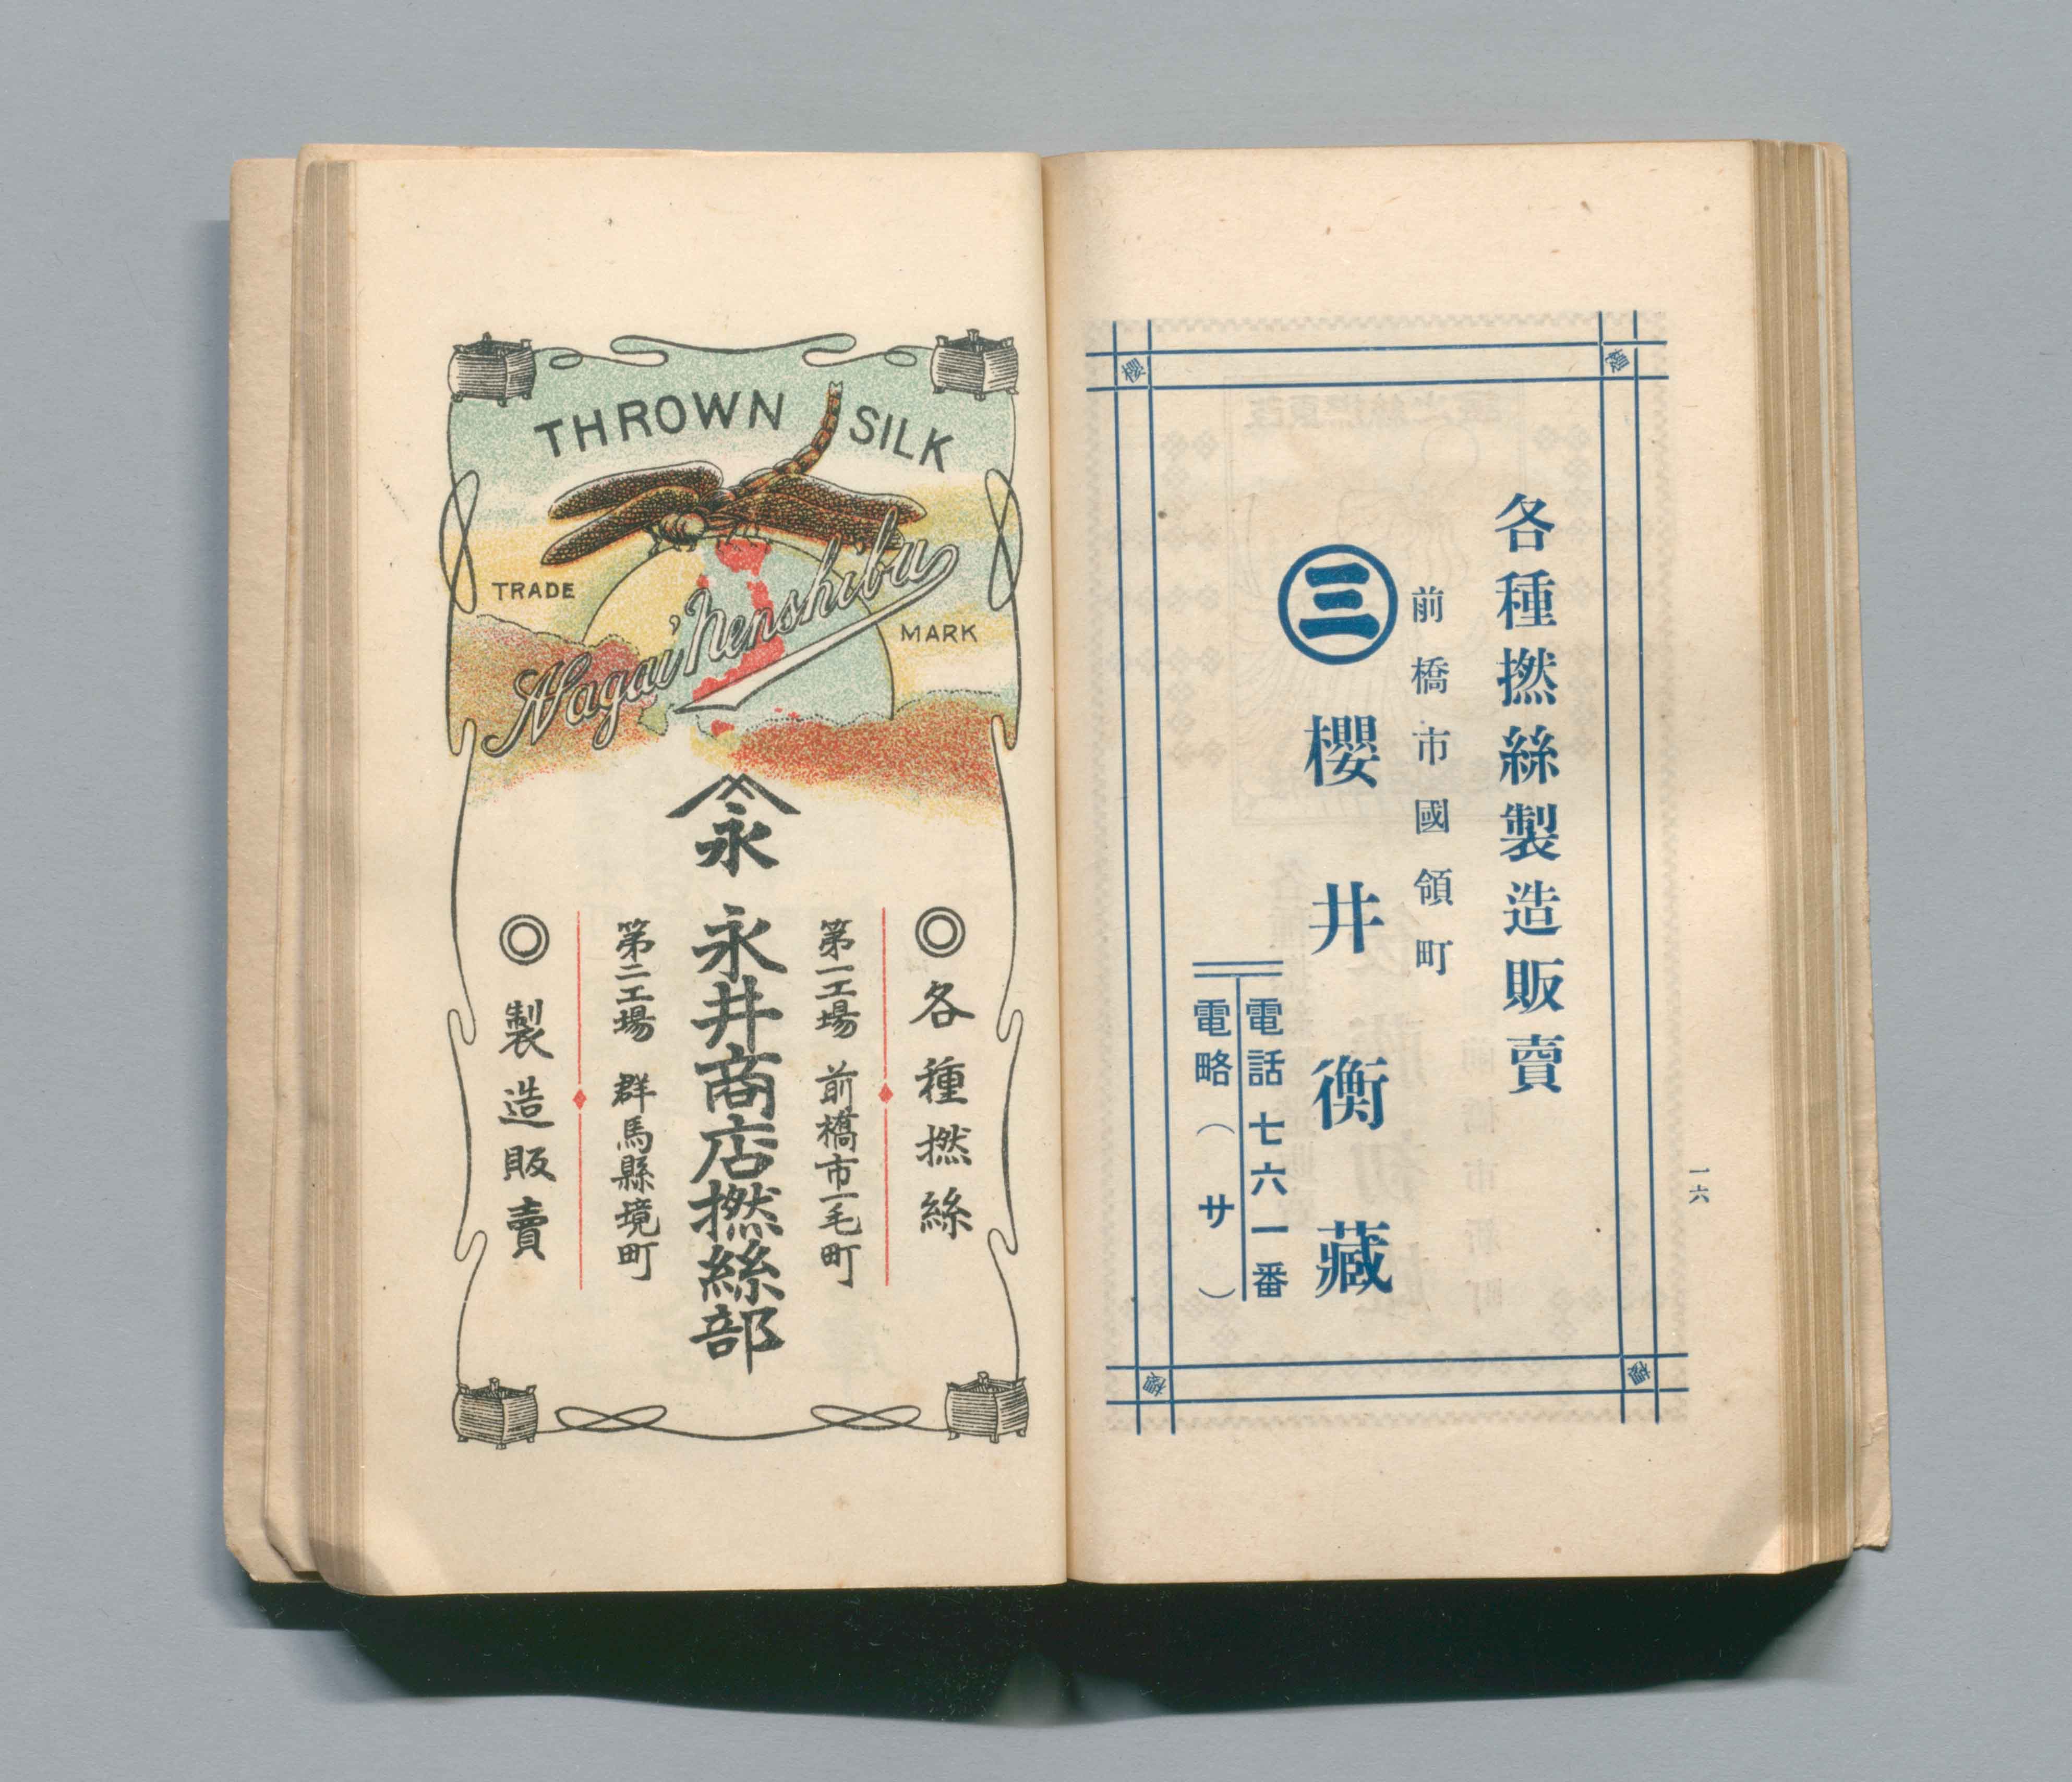 各種撚絲製造販賣
前橋市國領町
三
櫻井衡藏
電話七六一番
電略（サ）
一六
櫻
櫻
櫻
櫻
THROWN SILK
TRADE MARK
Nagai Nenshibu
永
◎各種撚絲
第一工場 前橋市一毛町
永井商店撚絲部
第二工場 群馬縣境町
◎製造販賣